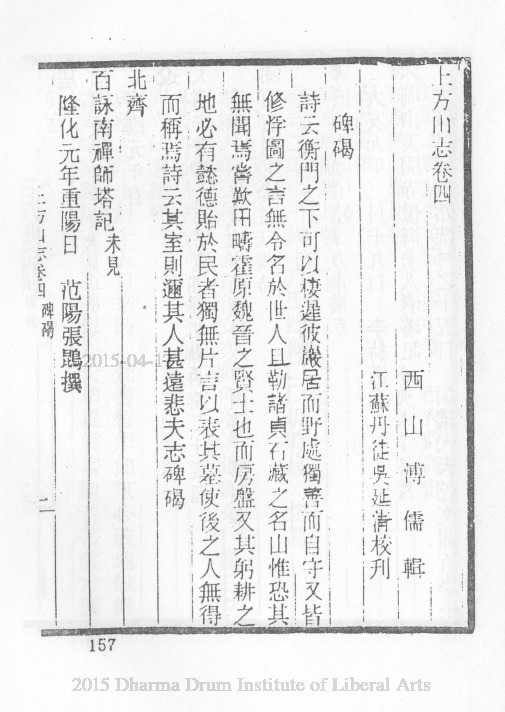 上方山志卷四
西山溥儒輯
江蘇丹徒吳延清校刊
碑碣
詩云衡門之下可以棲遲彼巖居而野處獨善而自守又皆
修浮圖之言無令名於世人且勒諸貞石藏之名山惟恐其
無聞焉嘗歎田疇霍原魏晉之賢士也而房盤又其躬耕之
地必有懿德貽於民者獨無片言以表其墓使後之人無得
而稱焉詩云其室則邇其人甚遠悲夫志碑碣
北齊
百詠南禪師塔記未見
隆化元年重陽日 范陽張鵾撰
上方山志卷四 碑碣 二
2015-04-17
157
2015 Dharma Drum Institute of Liberal Arts